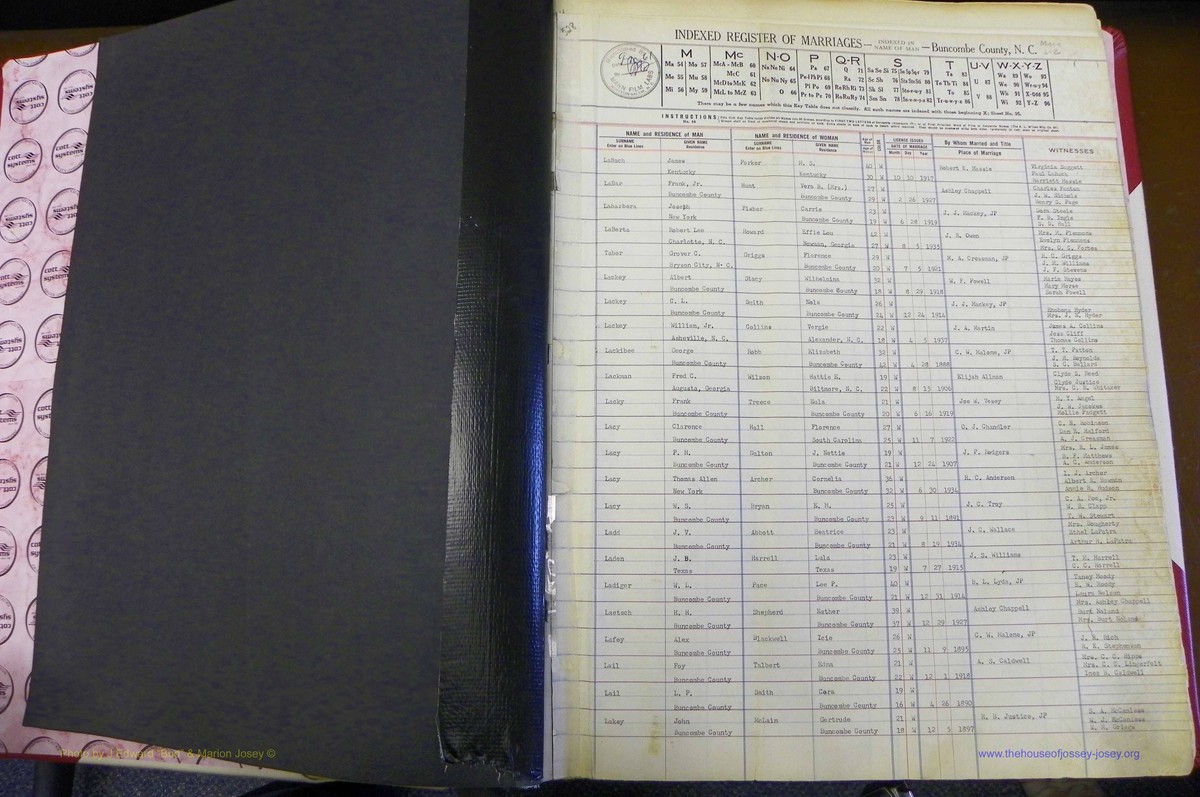 INDEXED REGISTER OF MARRIAGES — INDEXED IN NAME OF MAN — Buncombe County, N. C.
M Mc N-O P Q-R S T U-V W-X-Y-Z
Ma 54 Ma 57 McA - McB 60 Na Ne Ni 64 Pa 67 Q 71 Ta 83 U 87 Wa 89 Wo 93
Me 55 Mu 58 McC 61 No Nu Ny 65 Pe Pf Ph Pi 68 Ra 72 Sc Sh 76 Te Th Ti 84 We 90 Wr-w-y 94
Mi 56 My 59 McD to McK 62 O 66 Pl Po 69 Re Rh Ri 73 Sk Sl 77 To 85 V 88 Wh 91 X-Odd 95
McL to McZ 63 Pr to Pu 70 Ro Ru Ry 74 Sm Sn 78 Tr-u-w-y-z 86 Wi 92 Y-Z 96
There may be a few names which this Key Table does not classify. All such names are indexed with those beginning X; Sheet No. 95.
INSTRUCTIONS
NAME and RESIDENCE OF MAN NAME and RESIDENCE OF WOMAN COLOR LICENSE ISSUED By Whom Married and Title WITNESSES
SURNAME GIVEN NAME SURNAME GIVEN NAME DATE OF MARRIAGE
Enter on Blue Lines Residence Enter on Blue Lines Residence Month Day Year Place of Marriage
LaBach James Parker M. S. 40 W Robert K. Massie Virginia Suggett
Kentucky Kentucky 30 W 10 10 1917 Paul LaBach
Harriett Massie
LaBar Frank, Jr. Hunt Vera B. (Mrs.) 27 W Ashley Chappell Charles Penton
Buncombe County Buncombe County 29 W 2 26 1927 J. W. Nichols
Henry G. Page
Labarbera Joseph Fisher Carrie 23 W J. J. Mackey, JP Dora Steele
New York Buncombe County 19 W 6 28 1919 F. B. Ingle
S. G. Hall
LaBerta Robert Lee Howard Effie Lou 42 W J. B. Owen Mrs. H. Flemmons
Charlotte, N. C. Newnan, Georgia 27 W 8 5 1935 Evelyn Flemmons
Mrs. O. C. Forbes
Tabor Grover C. Griggs Florence 29 W M. A. Creasman, JP R. G. Griggs
Bryson City, N. C. Buncombe County 20 W 7 5 1921 J. H. Williams
J. P. Stevens
Lackey Albert Stacy Wilhelmina 32 W W. F. Powell Marie Hayes
Buncombe County Buncombe County 18 W 8 29 1918 Mary Hayes
Sarah Powell
Lackey C. L. Smith Nala 26 W J. J. Mackey, JP
Buncombe County Buncombe County 24 W 12 24 1914 Mrs. J. H. Ryder
Lackey William, Jr. Collins Vergie 22 W J. A. Martin James A. Collins
Asheville, N. C. Alexander, N. C. 18 W 4 5 1937 Jess Cliff
Thomas Collins
Lackibee George Robb Elizabeth 32 W C. W. Malone, JP T. T. Patton
Buncombe County Buncombe County 42 W 4 28 1888 J. H. Reynolds
S. C. Ballard
Lackman Fred C. Wilson Hattie E. 19 W Elijah Allman Clyde S. Reed
Augusta, Georgia Biltmore, N. C. 22 W 8 15 1906 Clyde Justice
Mrs. C. E. Whitaker
Lacky Frank Treece Eula 21 W Joe W. Vesey R. T. Angel
Buncombe County Buncombe County 20 W 6 16 1919 J. W. Jenckes
Mollie Padgett
Lacy Clarence Hall Florence 27 W O. J. Chandler C. H. Robinson
Buncombe County South Carolina 25 W 11 7 1922 Dan R. Halford
A. J. Creasman
Lacy P. H. Dalton J. Nettie 19 W J. P. Rodgers Mrs. R. L. James
Buncombe County Buncombe County 21 W 12 24 1907 B. F. Matthews
A. C. Anderson
Lacy Thomas Allen Archer Cornelia 36 W R. C. Anderson I. J. Archer
New York Buncombe County 32 W 6 30 1934 Albert R. Bowman
Annie R. Hudson
Lacy W. S. Bryan E. H. 25 W J. C. Troy C. A. Poe, Jr.
Buncombe County Buncombe County 23 W 9 11 1891 W. R. Clapp
T. W. Stewart
Ladd J. V. Abbott Beatrice 23 W J. C. Wallace Mrs. Daugherty
Buncombe County Buncombe County 21 W 8 19 1934 Ethel LaPatra
Arthur H. LaPatra
Laden J. B. Harrell Lula 23 W J. S. Williams T. H. Harrell
Texas Texas 19 W 7 27 1915 C. C. Harrell
Ladiger W. L. Pace Lee P. 40 W R. L. Lyda, JP Taney Moody
Buncombe County Buncombe County 21 W 12 31 1914 H. W. Moody
Laura Nelson
Laetsch H. H. Shepherd Esther 39 W Ashley Chappell Mrs. Ashley Chappell
Buncombe County Buncombe County 37 W 12 29 1927 Burt Neland
Mrs. Burt Neland
Lafoy Alex Blackwell Icie 26 W C. W. Malone, JP J. B. Rich
Buncombe County Buncombe County 25 W 11 9 1895 R. E. Stephenson
Lail Foy Talbert Edna 21 W A. S. Caldwell Mrs. C. C. Hipps
Buncombe County Buncombe County 22 W 12 1 1918 Mrs. C. C. Lingerfelt
Inez S. Caldwell
Lail L. P. Smith Cora 19 W
Buncombe County Buncombe County 16 W 4 26 1890
Lakey John McLain Gertrude 21 W R. H. Justice, JP R. A. McGaniess
Buncombe County Buncombe County 18 W 12 5 1897 W. J. McGaniess
W. R. Griggs
cott systems
Photo by J Edward "Bull" & Marion Josey ©
www.thehouseofjossey-josey.org